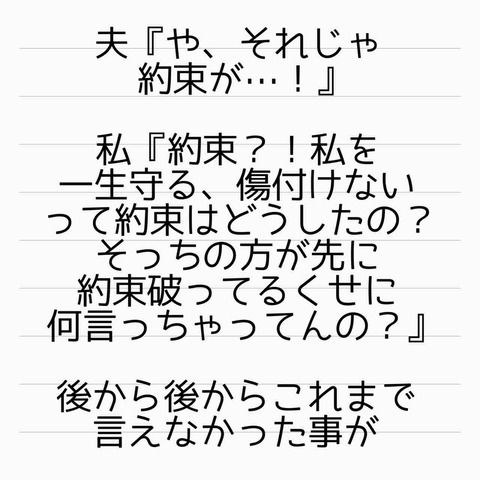 夫『や、それじゃ
約束が…！』
私『約束？！私を
一生守る、傷付けない
って約束はどうしたの？
そっちの方が先に
約束破ってるくせに
何言っちゃってんの？』
後から後からこれまで
言えなかった事が